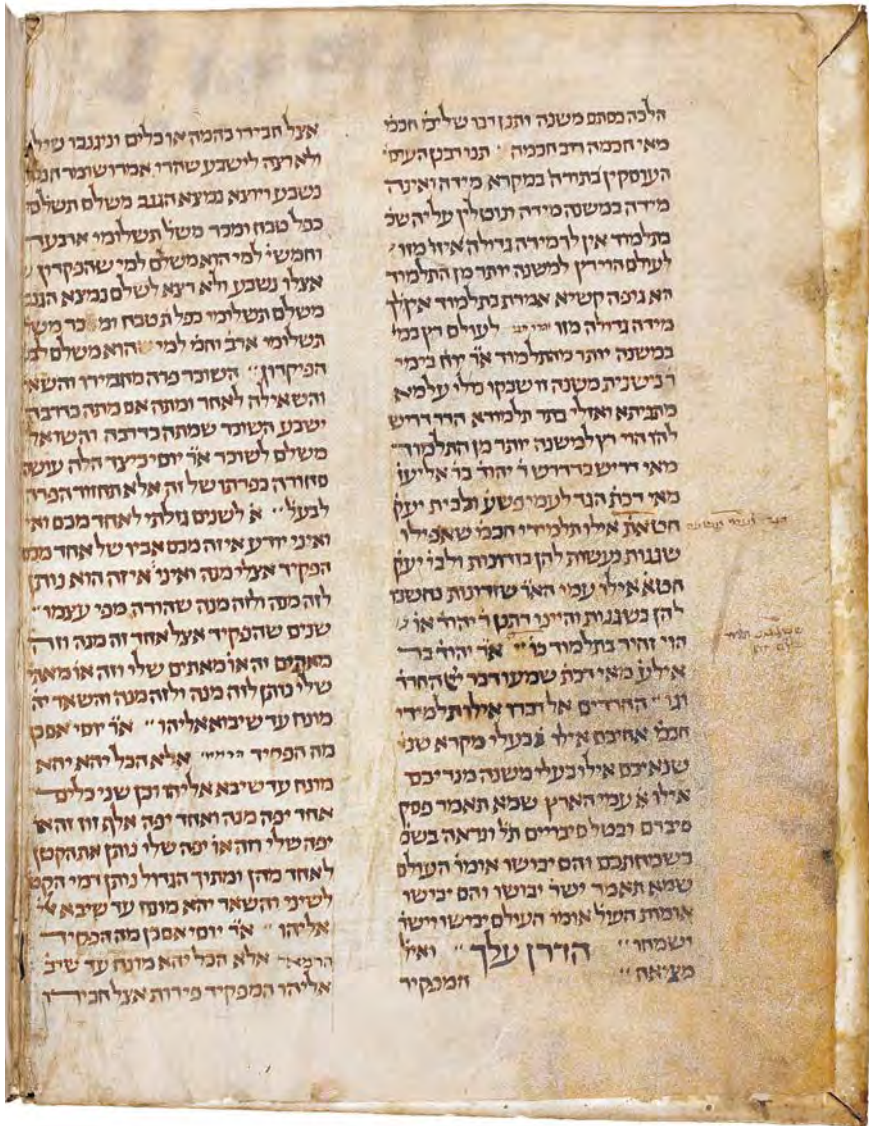 הלכה כסתם משנה ותנן דבר שלימ חכמ
מאי חכמה ריב חכמה תנו רבנן העוס
העוסקין בתורה במקרא מידה ואינה
מידה במשנה מידה ונוטלין עליה שכ
בתלמוד אין לך מידה גדולה איזו מזו
לעולם הוי רץ למשנה יותר מן התלמוד
הא גופה קשיא אמרת בתלמוד אין לך
מידה גדולה מזו לעולם רץ
במשנה יותר מהתלמוד אר יוח בימי
ר נישנית משנה זו שבקו כולי עלמא
מתניתא ואזלי בתר תלמודא הדר דריש
להו הוי רץ למשנה יותר מן התלמוד
מאי דריש כדדרש ר יהוד בר אליעי
מאי דכת הגד לעמי פשע ולבית יעק
חטאת אילו תלמידי חכמ שאפילו
שגגות נעשות להן כזדונות ולבי יעק
חטא אילו עמי האר שזדונות נחשבו
להן כשגגות והיינו דתנן ר יהוד או
הוי זהיר בתלמוד כו אר יהוד בר
אילע מאי דכת שמעו דבר יי החרד
וגו החרדים אל דברו אילו תלמידי
חכמ אחיכם אילו בעלי מקרא שנ
שנאיכם אילו בעלי משנה מנדיכם
אילו עמי הארץ שמא תאמר פסק
סיברם ובטל סיבריים תל ונראה בשמ
בשמחתכם והם יבושו אומו העולם
שמא תאמר ישר יבושו והם יבושו
אומות העול אומו העולם יבושו ויש
ישמחו הדרן עלך ואיל
מציאה
המפקיד
אצל חבירו בהמה או כלים ונינגבו שיל
ולא רצה לישבע שהרי אמרו שומר חנם
נשבע ויוצא נמצא הגנב משלם תשלומ
כפל טבח ומכר משל תשלומי ארבעה
וחמשי למי הוא משלם למי שהפקדון
אצלו נשבע ולא רצא לשלם נמצא הגנב
משלם תשלומי כפל טבח ומכר משל
תשלומי ארב וחמ למי הוא משלם לב
הפיקדון השוכר פרה מחבירו והשא
והשאילה לאחר ומתה אם מתה כדרכה
ישבע השוכר שמתה כדרכה והשואל
משלם לשוכר אר יוסי כיצד הלה עושה
סחורה בפרתו של זה אלא תחזור הפרה
לבעל א לשנים גזלתי לאחד מכם ואי
ואיני יודע איזה מכם אביו של אחד מכם
הפקיד אצלי מנה ואיני איזה הוא נותן
לזה מנה ולזה מנה שהודה מפי עצמו
שנים שהפקיד אצל אחד זה מנה וזה
מאתים זה או מאתים שלי וזה או מאת
שלי נותן לזה מנה ולזה מנה והשאר יה
מונח עד שיבוא אליהו אר יוסי אם כן
מה הפסיד אלא הכל יהא יהא
מונח עד שיבא אליהו וכן שני כלים
אחד יפה מנה ואחד יפה אלף זוז זה או
יפה שלי וזה או יפה שלי נותן את הקטן
לאחד מהן ומתיך הגדול ניתן דמי הקט
לשיני והשאר יהא מונח עד שיבא
אליהו אר יוסי אם כן מה הפסיד
הרמאי אלא הכל יהא מונח עד שיב
אליהו המפקיד פירות אצל חביר